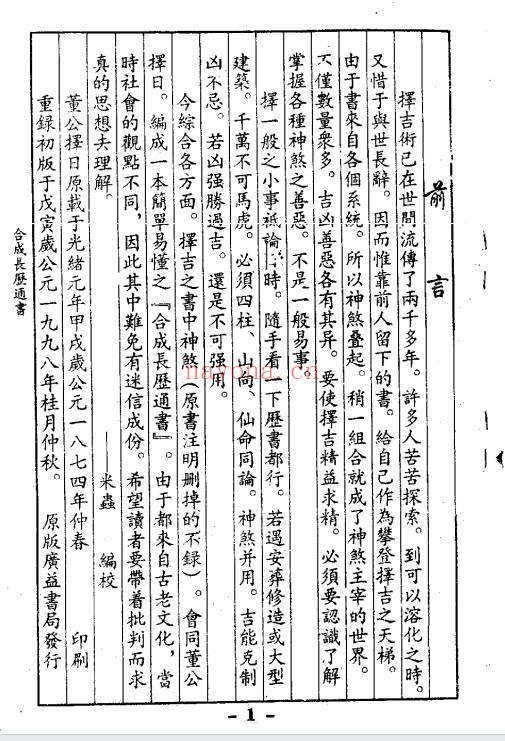 前言
擇吉術已在世間流傳了兩千多年。許多人苦苦探索。到可以溶化之時。
又惜于與世長辭。因而惟靠前人留下的書。給自己作為攀登擇吉之天梯。
由于書來自各個系統。所以神煞叠起。稍一組合就成了神煞主宰的世界。
不僅數量衆多。吉凶善惡各有其异。要使擇吉精益求精。必須要認識了解
掌握各種神煞之善惡。不是一般易事
擇一般之小事祗論時。隨手看一下歷書都行。若遇安葬修造或大型
建築。千萬不可馬虎。必須四柱、山向、仙命同論。神煞并用。吉能克制
凶不忌。若凶强勝過吉。還是不可强用。
今綜合各方面。擇吉之書中神煞(原書注明删掉的不録)。會同董公
擇日。編成一本簡單易懂之『合成長歷通書』。由于都來自古老文化，當
時社會的觀點不同，因此其中難免有迷信成份。希望讀者要帶着批判而求
真的思想去理解。
米蟲 編校
董公擇日原載于光緒元年甲戌歲公元一八七四年仲春 印刷
重録初版于戊寅歲公元一九九八年桂月仲秋。 原版廣益書局發行
合成長歷通書
nayona.ca
- 1 -